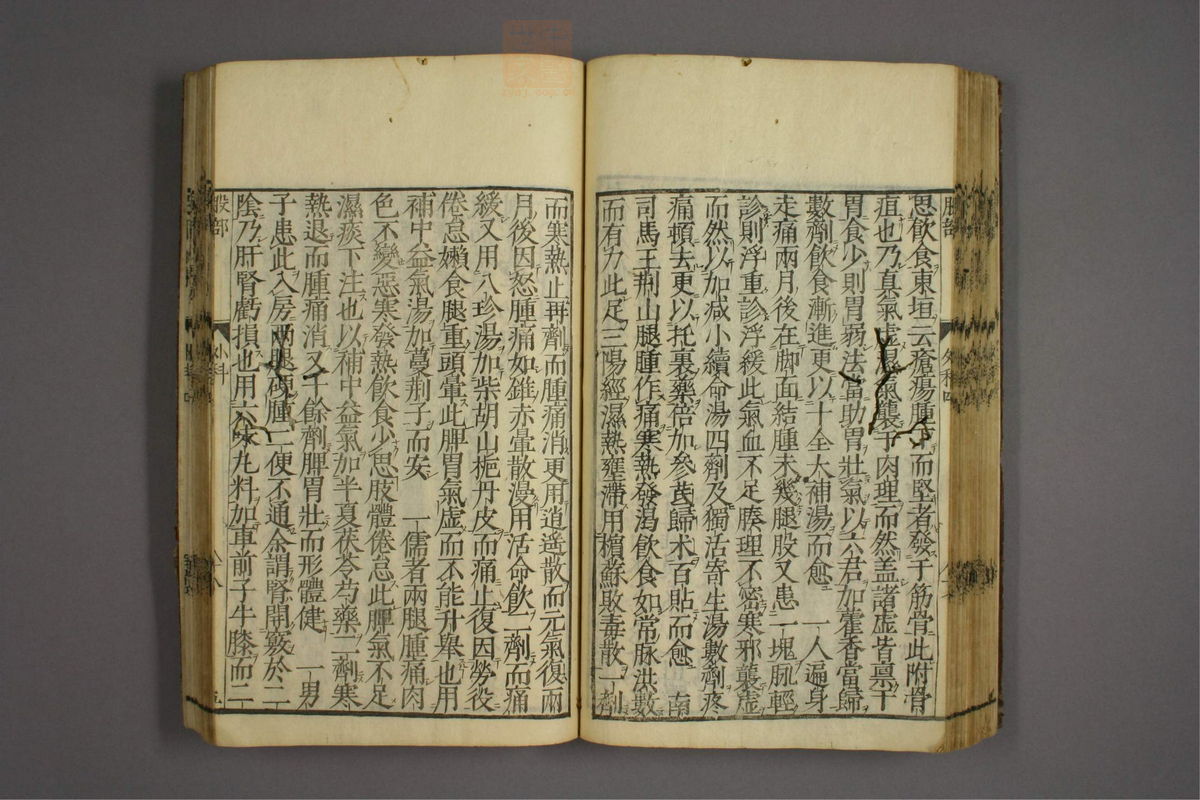 思飲食東垣云瘡瘍腫下而堅者發于筋骨此附骨
疽也乃真氣虛濕氣襲于肉理而然盖諸虛皆禀于
胃食少則胃弱法當助胃壯氣以六君加藿香當歸
數劑飲食漸進更以十全大補湯而愈 一人遍身
走痛兩月後在脚面結腫未幾腿股又患一塊脉輕
診則浮重診浮緩此氣血不足腠理不密寒邪襲虛
而然以加减小續命湯四劑及獨活寄生湯數劑疼
痛頓去更以托裏藥倍加參芪歸术百貼而愈 南
司馬王荆山腿腫作痛寒熱發渴飲食如常脉洪數
而有力此足三陽經濕熱壅滯用檳蘇敗毒散一劑
而寒熱止再劑而腫痛消更用逍遙散而元氣復兩
月後因怒腫痛如錐赤暈散漫用活命飲二劑而痛
緩又用八珍湯加柴胡山梔丹皮而痛止復因勞役
倦怠嬾食腿重頭暈此脾胃氣虛而不能升舉也用
補中益氣湯加蔓荆子而安 一儒者兩腿腫痛肉
色不變惡寒發熱飲食少思肢體倦怠此脾氣不足
濕痰下注也以補中益氣加半夏茯苓芍藥二劑寒
熱退而腫痛消又十餘劑脾胃壯而形體健 一男
子患此入房兩腿硬腫二便不通余謂腎開竅於二
陰乃肝腎虧損也用六味丸料加車前子牛膝而二
股部 外科